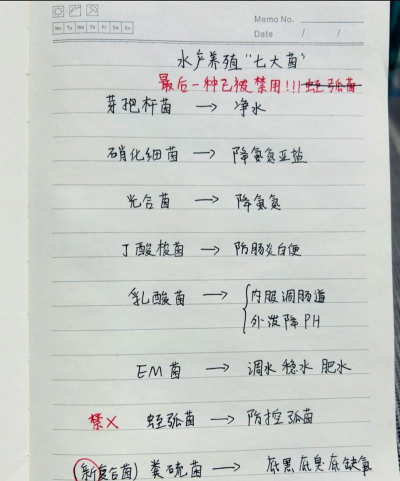 Memo No.
Mo Tu We Th Fr Sa Su
Date / /
水产养殖"七大菌"
最后一种已被禁用!!! 蛭弧菌
芽孢杆菌 → 净水
硝化细菌 → 降氨氮亚盐
光合菌 → 降氨氮
丁酸梭菌 → 防肠炎白便
乳酸菌 → { 内服调肠道
外泼降PH
EM菌 → 调水 稳水 肥水
禁× 蛭弧菌 → 防控弧菌
(新复合菌) 粪硫菌 → 底黑底臭底缺氧